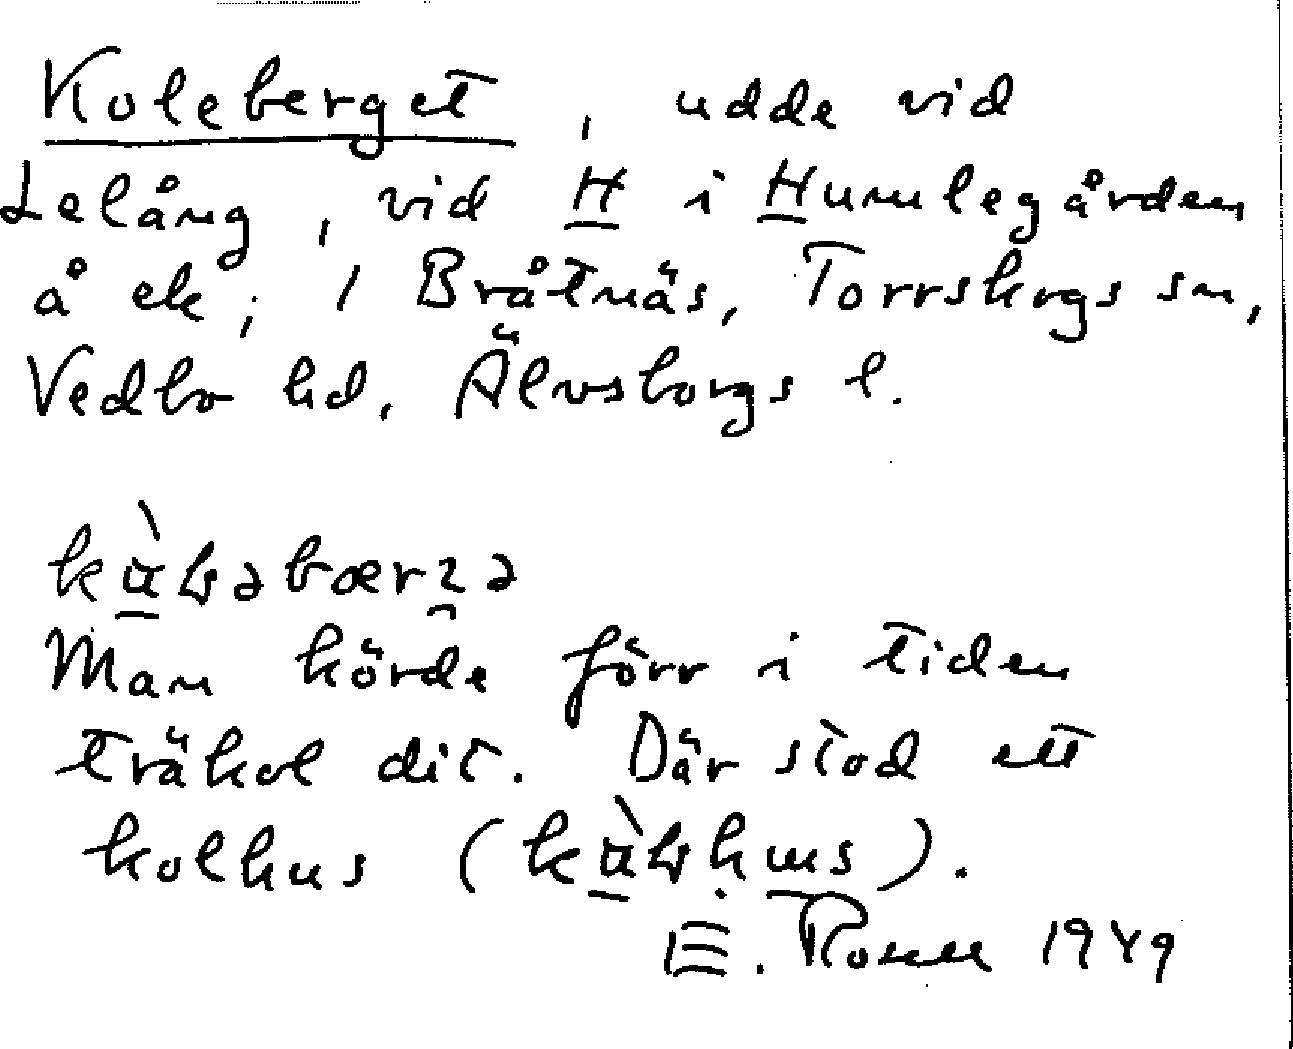 Koleberget, udde vid
Lelång, vid H i Humlegården
å ek; i Bråtnäs, Torrskogs sn,
Vedbo hd, Älvsborgs l.
Man körde förr i tiden
träkol dit. Där stod ett
kolhus
E. Rosell 1949